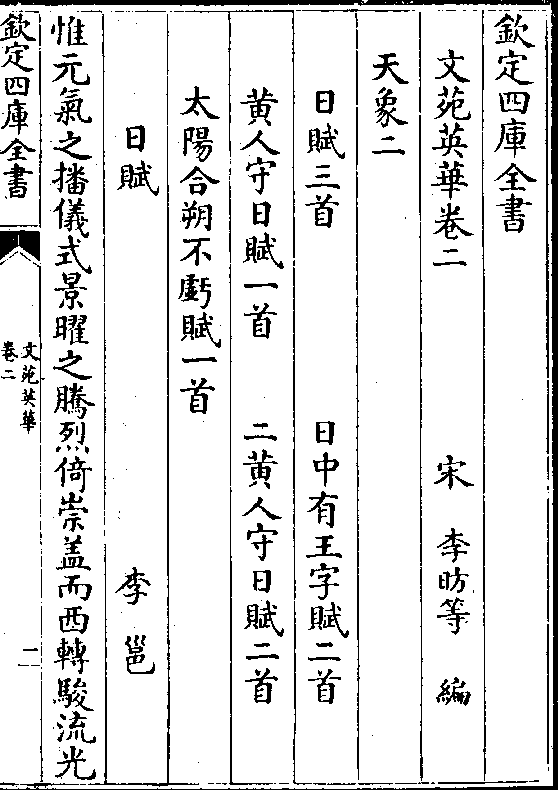 欽定四庫全書
文苑英華卷二
宋 李昉等 編
天象二
日賦三首 日中有王字賦二首
黄人守日賦一首 二黄人守日賦二首
太陽合朔不虧賦一首
日賦 李邕
惟元氣之播儀式景曜之騰烈倚崇盖而西轉駿流光
欽定四庫全書
文苑英華
卷二
一